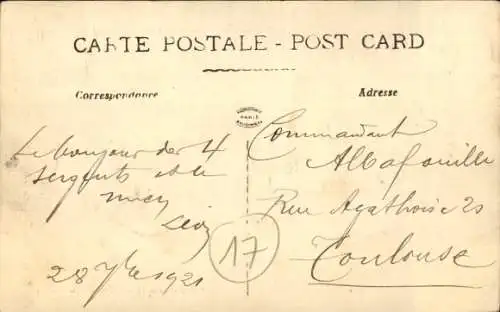 CARTE POSTALE - POST CARD
Correspondance
Adresse
Le bonjour des 4
sergents et le
mien
Léon
28 7bre 1921
Commandant
Albafouille
Rue Agathoise 20
Toulouse
17